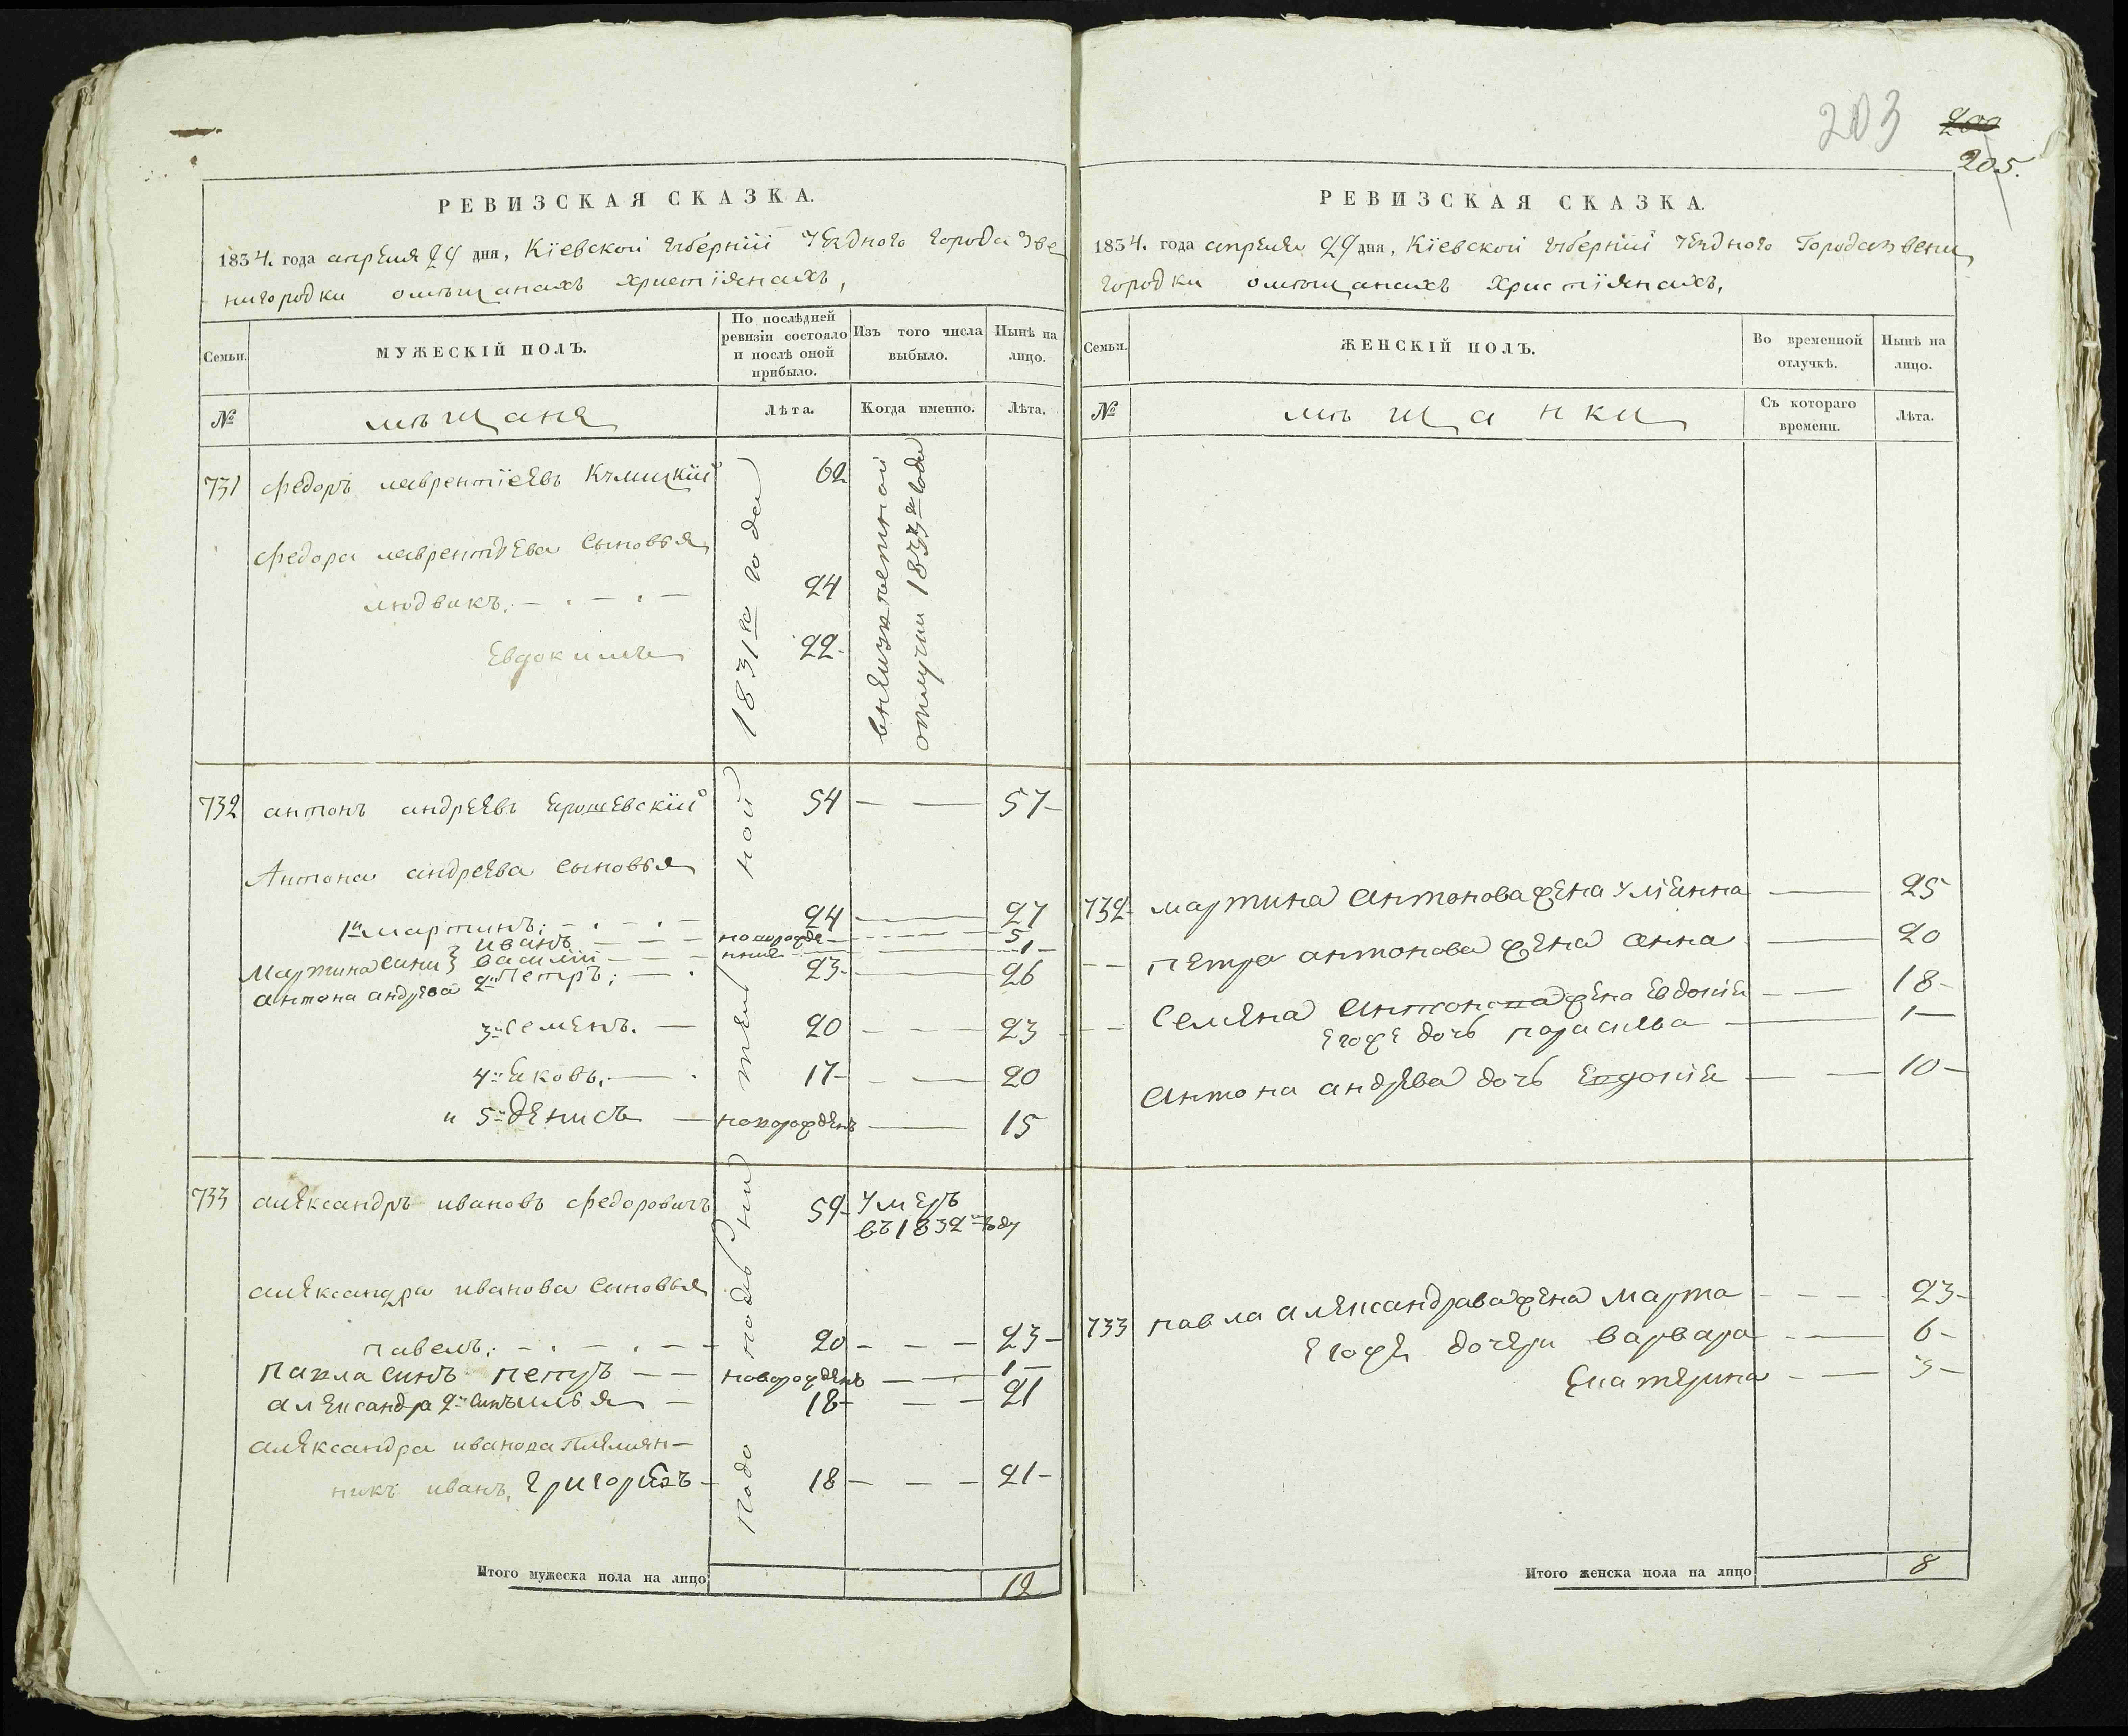 203
200
205.
РЕВИЗСКАЯ СКАЗКА.
1834. года апреля 24 дня, Кїевской губернїи уездного города Зве
нигородки о мѣщанахъ христїянахъ,
Семьи.
МУЖЕСКІЙ ПОЛЪ.
По послѣдней ревизіи состояло и послѣ оной прибыло.
Изъ того числа выбыло.
Нынѣ на лицо.
№
мѣщане
Лѣта.
Когда именно.
Лѣта.
731 Федоръ лаврентїевъ 62
Федора лаврентьева сыновья
людвикъ. 24
Евдокимъ 22
1831го года
отлучки 1833го года
732 антонъ андреевъ Ерошевскїй 54 57
Антона андреева сыновья
1й мартинъ; 24 27
иванъ новорожде 5
Мартина сини василий нные 1
антона андрева 2й Петръ; 23 26
3й семенъ. 20 23
4й Яковъ. 17 20
и 5й денисъ новорожденъ 15
733 александръ ивановъ Федоровичъ 59 умеръ
въ 1832м году
александра иванова сыновья
павелъ: 20 23
павла синъ петръ новорожденъ 1
александра 2й синъ илья 18 21
александра иванова племян-
никъ иванъ, григорїевъ 18 21
Итого мужеска пола на лицо 12
РЕВИЗСКАЯ СКАЗКА.
1834. года апреля 24 дня, Кїевской губернїи уездного Города звени
городки о мѣщанахъ христїянахъ,
Семьи.
ЖЕНСКІЙ ПОЛЪ.
Во временной отлучкѣ.
Нынѣ на лицо.
№
мѣщанки
Съ котораго времени.
Лѣта.
732 мартина антонова жена улїанна 25
петра антонова жена анна 20
семена антонова жена Евдокия 18
его же дочь парасkева 1
антона андрева дочь Евдокия 10
733 павла александрава жена марта 23
его же дочери варвара 6
Екатерина 3
Итого женска пола на лицо 8